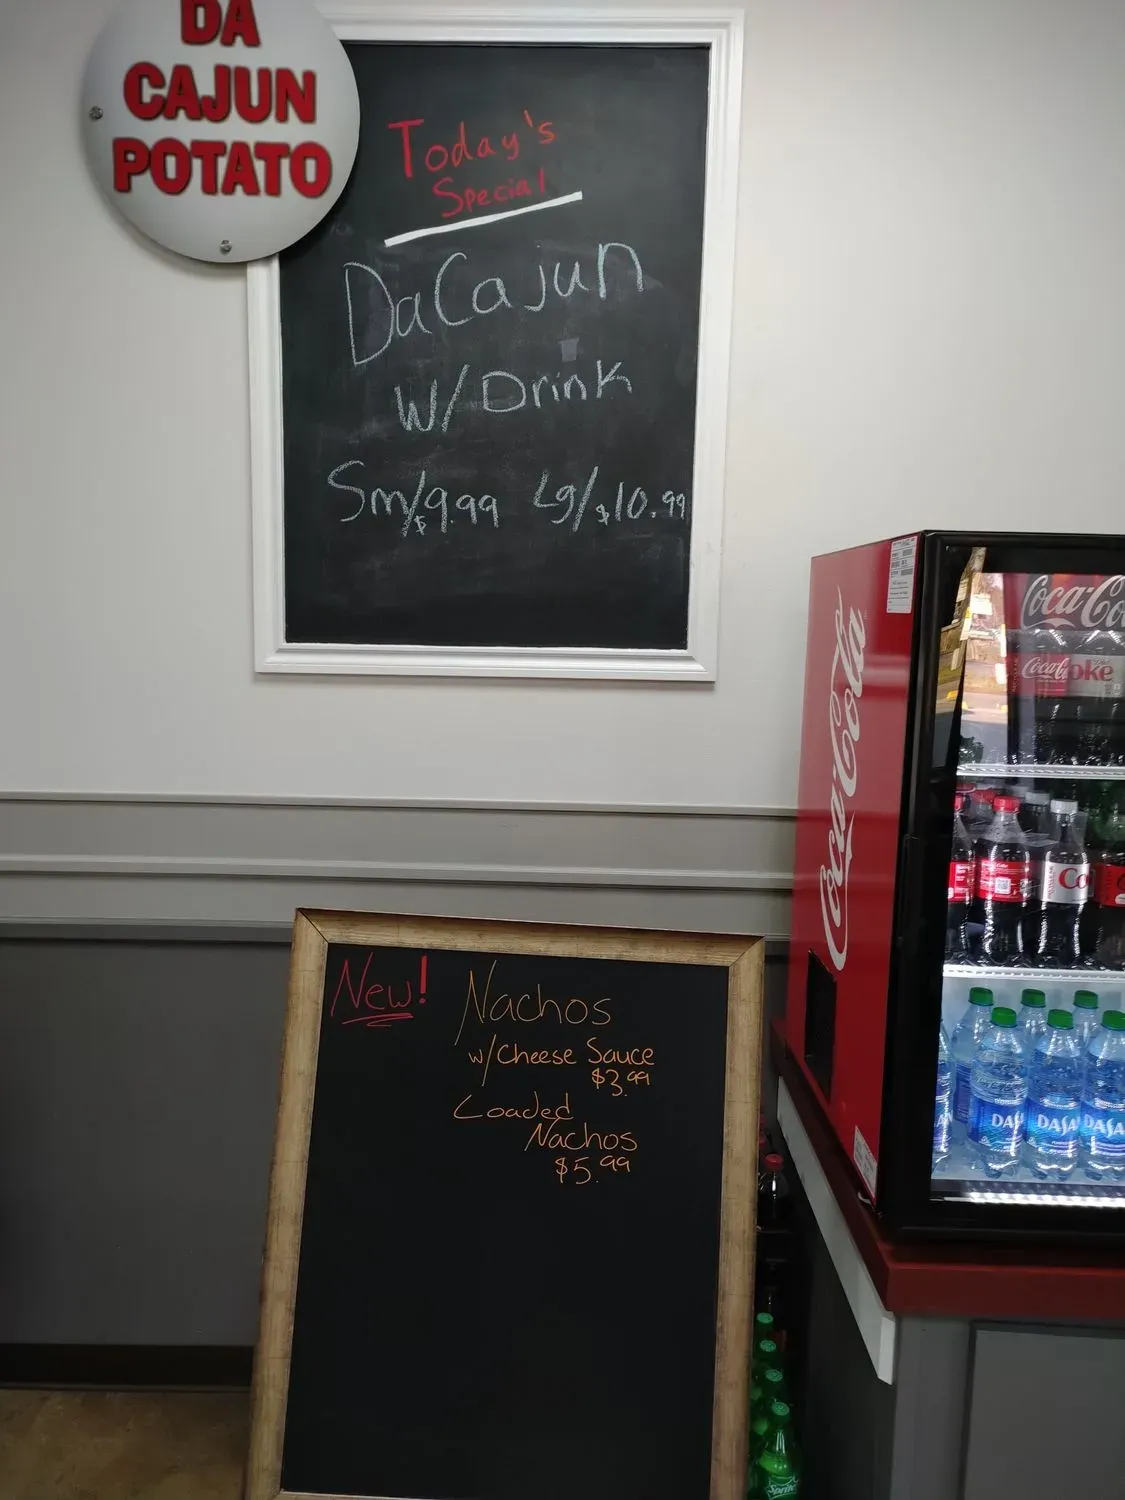 DA
CAJUN
POTATO
Today's
Special
DaCajun
W/Drink
Sm/$9.99 Lg/$10.99
New!
Nachos
w/Cheese Sauce
$3.99
Loaded
Nachos
$5.99
Coca-Cola
Coca-Co
Coca-Cola
oke
Co
DASA
DASA
DASA
Sprite